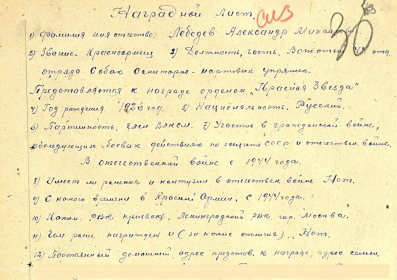 Наградной Лист.
1) Фамилия имя отчество: Лебедев Александр
2) Звание. Красноармеец 3) Должность, часть. Вожатый
отряда собак санитарно-нартовых упряжек.
Представляется к награде орденом "Красная Звезда"
4) Год рождения 5) Национальность, Русский.
6) Партийность, член ВЛКСМ. 7) Участие в гражданской войне,
последующих боевых действиях по защите СССР и отечествен. войне.
В отечественной войне с 1944 года.
8) Имеет ли ранения и контузии в отечествен. войне Нет.
9) С какого времени в Красной Армии, с 1944 года.
10) Каким РВК призван. Ленинградский РВК гор. Москва.
11) Чем ранее награжден (за какие отличия). Нет.
12) Постоянный домашний адрес представ. к награде, адрес семьи,